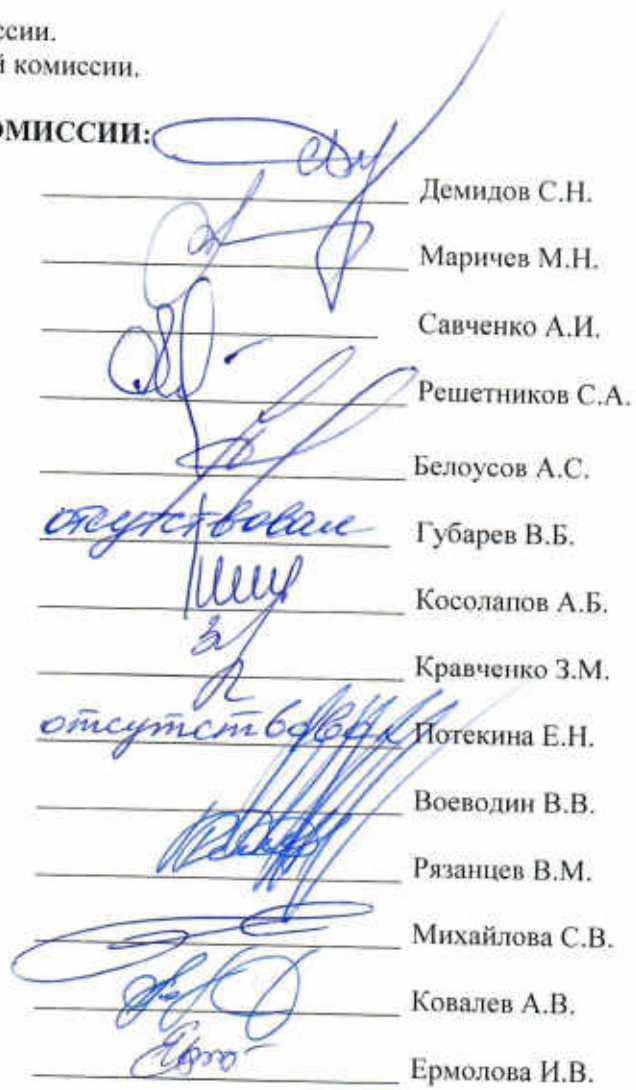 ссии.
й комиссии.
ОМИССИИ:
Демидов С.Н.
Маричев М.Н.
Савченко А.И.
Решетников С.А.
Белоусов А.С.
отсутствовал Губарев В.Б.
Косолапов А.Б.
Кравченко З.М.
отсутствовал Потекина Е.Н.
Воеводин В.В.
Рязанцев В.М.
Михайлова С.В.
Ковалев А.В.
Ермолова И.В.